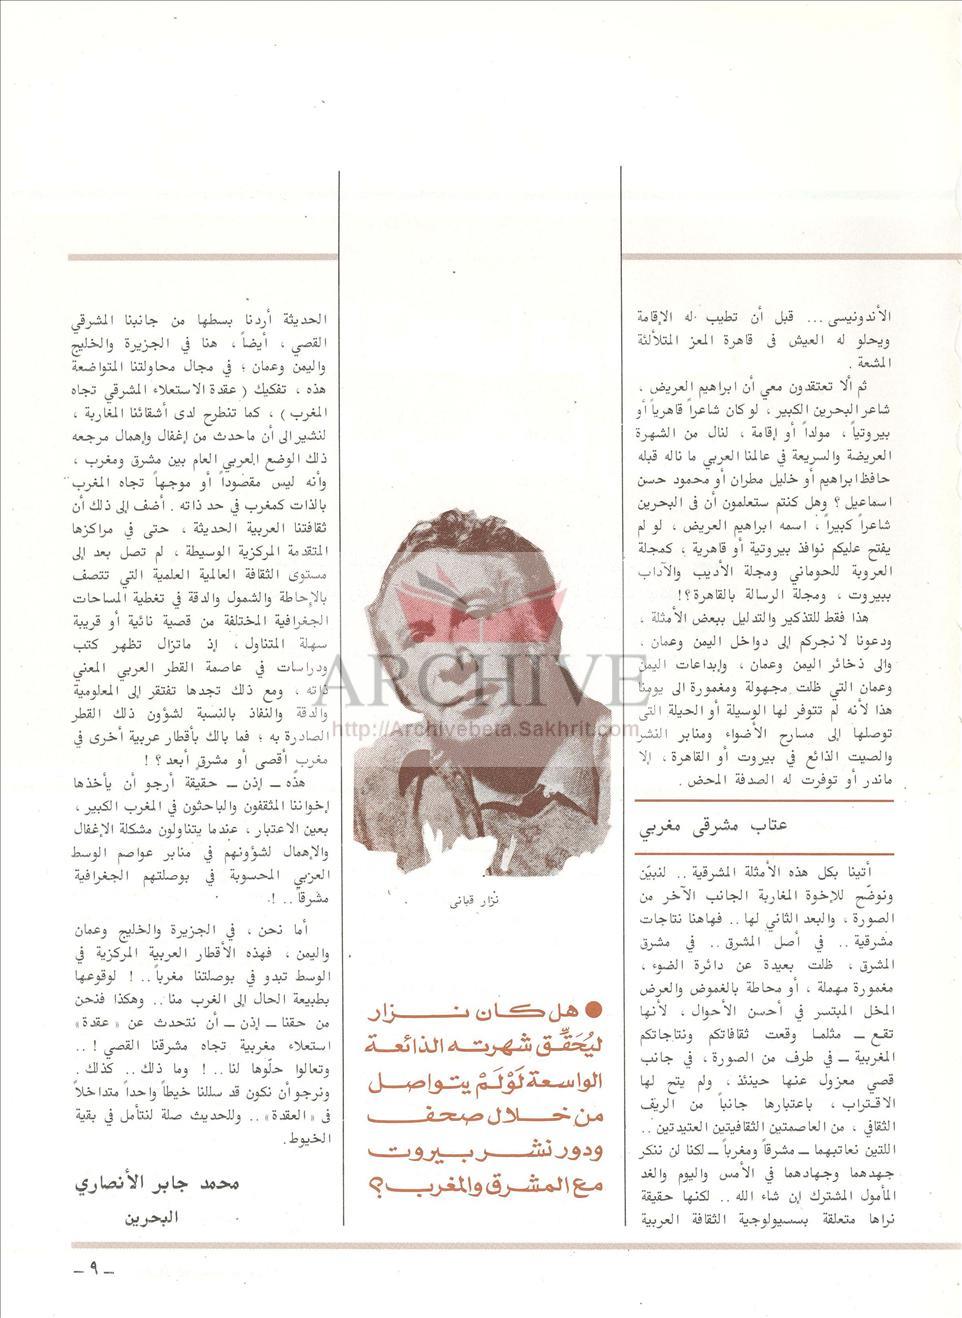 الأندونيسى... قبل أن تطيب له الإقامة
ويحلو له العيش فى قاهرة المعز المتلألئة
المشعة .
ثم ألا تعتقدون معي أن ابراهيم العريض ،
شاعر البحرين الكبير ، لو كان شاعراً قاهرياً أو
بيروتياً ، مولداً أو إقامة ، لنال من الشهرة
العريضة والسريعة في عالمنا العربي ما ناله قبله
حافظ ابراهيم أو خليل مطران أو محمود حسن
اسماعيل ؟ وهل كنتم ستعلمون أن فى البحرين
شاعراً كبيراً ، اسمه ابراهيم العريض ، لو لم
يفتح عليكم نوافذ بيروتية أو قاهرية ، كمجلة
العروبة للحوماني ومجلة الأديب والآداب
ببيروت ، ومجلة الرسالة بالقاهرة؟!
هذا فقط للتذكير والتدليل ببعض الأمثلة ،
ودعونا لا نجركم إلى دواخل اليمن وعمان ،
والى ذخائر اليمن وعمان ، وإبداعات اليمن
وعمان التي ظلت مجهولة ومغمورة الى يومنا
هذا لأنه لم تتوفر لها الوسيلة أو الحيلة التى
توصلها إلى مسارح الأضواء ومنابر النشر
والصيت الذائع في بيروت أو القاهرة ، إلا
ماندر أو توفرت له الصدفة المحض .
عتاب مشرقى مغربي
أتينا بكل هذه الأمثلة المشرقية .. لنبيّن
ونوضّح للإخوة المغاربة الجانب الآخر من
الصورة ، والبعد الثاني لها .. فهاهنا نتاجات
مشرقية .. في أصل المشرق .. في مشرق
المشرق ، ظلت بعيدة عن دائرة الضوء ،
مغمورة مهملة ، أو محاطة بالغموض والعرض
المخل المبتسر في أحسن الأحوال ، لأنها
تقع ـ مثلما وقعت ثقافاتكم ونتاجاتكم
المغربية ـ في طرف من الصورة ، في جانب
قصي معزول عنها حينئذ ، ولم يتح لها
الاقتراب ، باعتبارها جانباً من الريف
الثقافي ، من العاصمتين الثقافيتين العتيدتين ..
اللتين نعاتبهما ـ مشرقاً ومغرباً ـ لكنا لن ننكر
جهدهما وجهادهما في الأمس واليوم والغد
المأمول المشترك إن شاء الله .. لكنها حقيقة
نراها متعلقة بسسيولوجية الثقافة العربية
نزار قبانى
● هل كان نزار
ليُحَقِّق شهرته الذائعة
الواسعة لَوْ لَمْ يتواصل
من خلال صحف
ودور نشر بيروت
مع المشرق والمغرب؟
الحديثة أردنا بسطها من جانبنا المشرقي
القصي ، أيضاً ، هنا في الجزيرة والخليج
واليمن وعمان ؛ في مجال محاولتنا المتواضعة
هذه ، تفكيك ( عقدة الاستعلاء المشرقي تجاه
المغرب ) ، كما تنطرح لدى أشقائنا المغاربة ،
لنشير الى أن ماحدث من إغفال وإهمال مرجعه
ذلك الوضع العربي العام بين مشرق ومغرب ،
وأنه ليس مقصوداً أو موجهاً تجاه المغرب
بالذات كمغرب في حد ذاته . أضف الى ذلك أن
ثقافتنا العربية الحديثة ، حتى في مراكزها
المتقدمة المركزية الوسيطة ، لم تصل بعد إلى
مستوى الثقافة العالمية العلمية التي تتصف
بالإحاطة والشمول والدقة في تغطية المساحات
الجغرافية المختلفة من قصية نائية أو قريبة
سهلة المتناول ، إذ ماتزال تظهر كتب
ودراسات في عاصمة القطر العربي المعني
ذاته ، ومع ذلك تجدها تفتقر إلى المعلومية
والدقة والنفاذ بالنسبة لشؤون ذلك القطر
الصادرة به ؛ فما بالك بأقطار عربية أخرى في
مغرب أقصى أو مشرق أبعد ؟ !
هذه ـ إذن ـ حقيقة أرجو أن يأخذها
إخواننا المثقفون والباحثون في المغرب الكبير ،
بعين الاعتبار ، عندما يتناولون مشكلة الإغفال
والإهمال لشؤونهم في منابر عواصم الوسط
العربي المحسوبة في بوصلتهم الجغرافية
مشرقاً .. !
أما نحن ، في الجزيرة والخليج وعمان
واليمن ، فهذه الأقطار العربية المركزية في
الوسط تبدو في بوصلتنا مغرباً .. ! لوقوعها
بطبيعة الحال إلى الغرب منا .. وهكذا فنحن
من حقنا ـ إذن ـ أن نتحدث عن « عقدة»
استعلاء مغربية تجاه مشرقنا القصي ! ..
وتعالوا حلّوها لنا .. ! وما ذلك .. كذلك .
ونرجو أن نكون قد سللنا خيطاً واحداً متداخلاً
فى «العقدة» .. وللحديث صلة لنتأمل في بقية
الخيوط .
محمد جابر الأنصاري
البحرين
ـ ٩ ـ
ARCHIVE
http://Archivebeta.Sakhrit.com